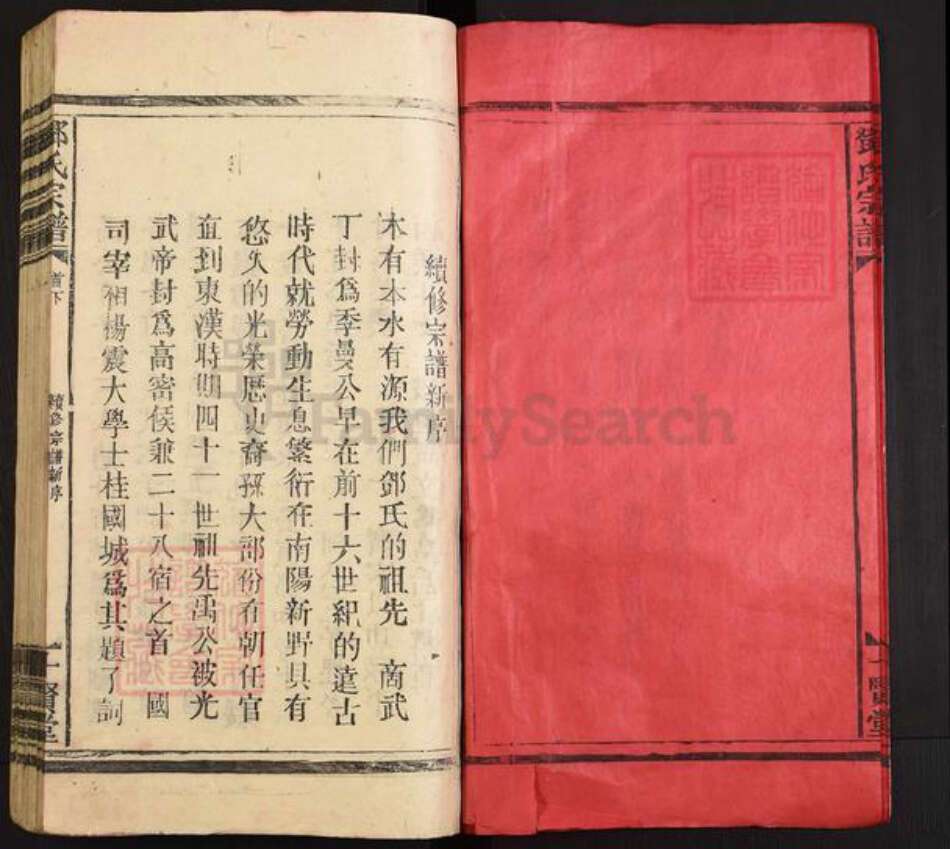 鄧氏宗譜
續修宗譜新序
木有本水有源我們鄧氏的祖先 商武
丁封為季曼公早在前十六世紀的遠古
時代就勞動生息繁衍在南陽新野具有
悠久的光榮歷史裔孫大部份在朝任官
直到東漢時期四十一世祖先禹公被光
武帝封為高密侯兼二十八宿之首 國
司宰相楊震大學士桂國城為其題了詞
鄧氏宗譜
首下
續修宗譜新序
FamilySearch